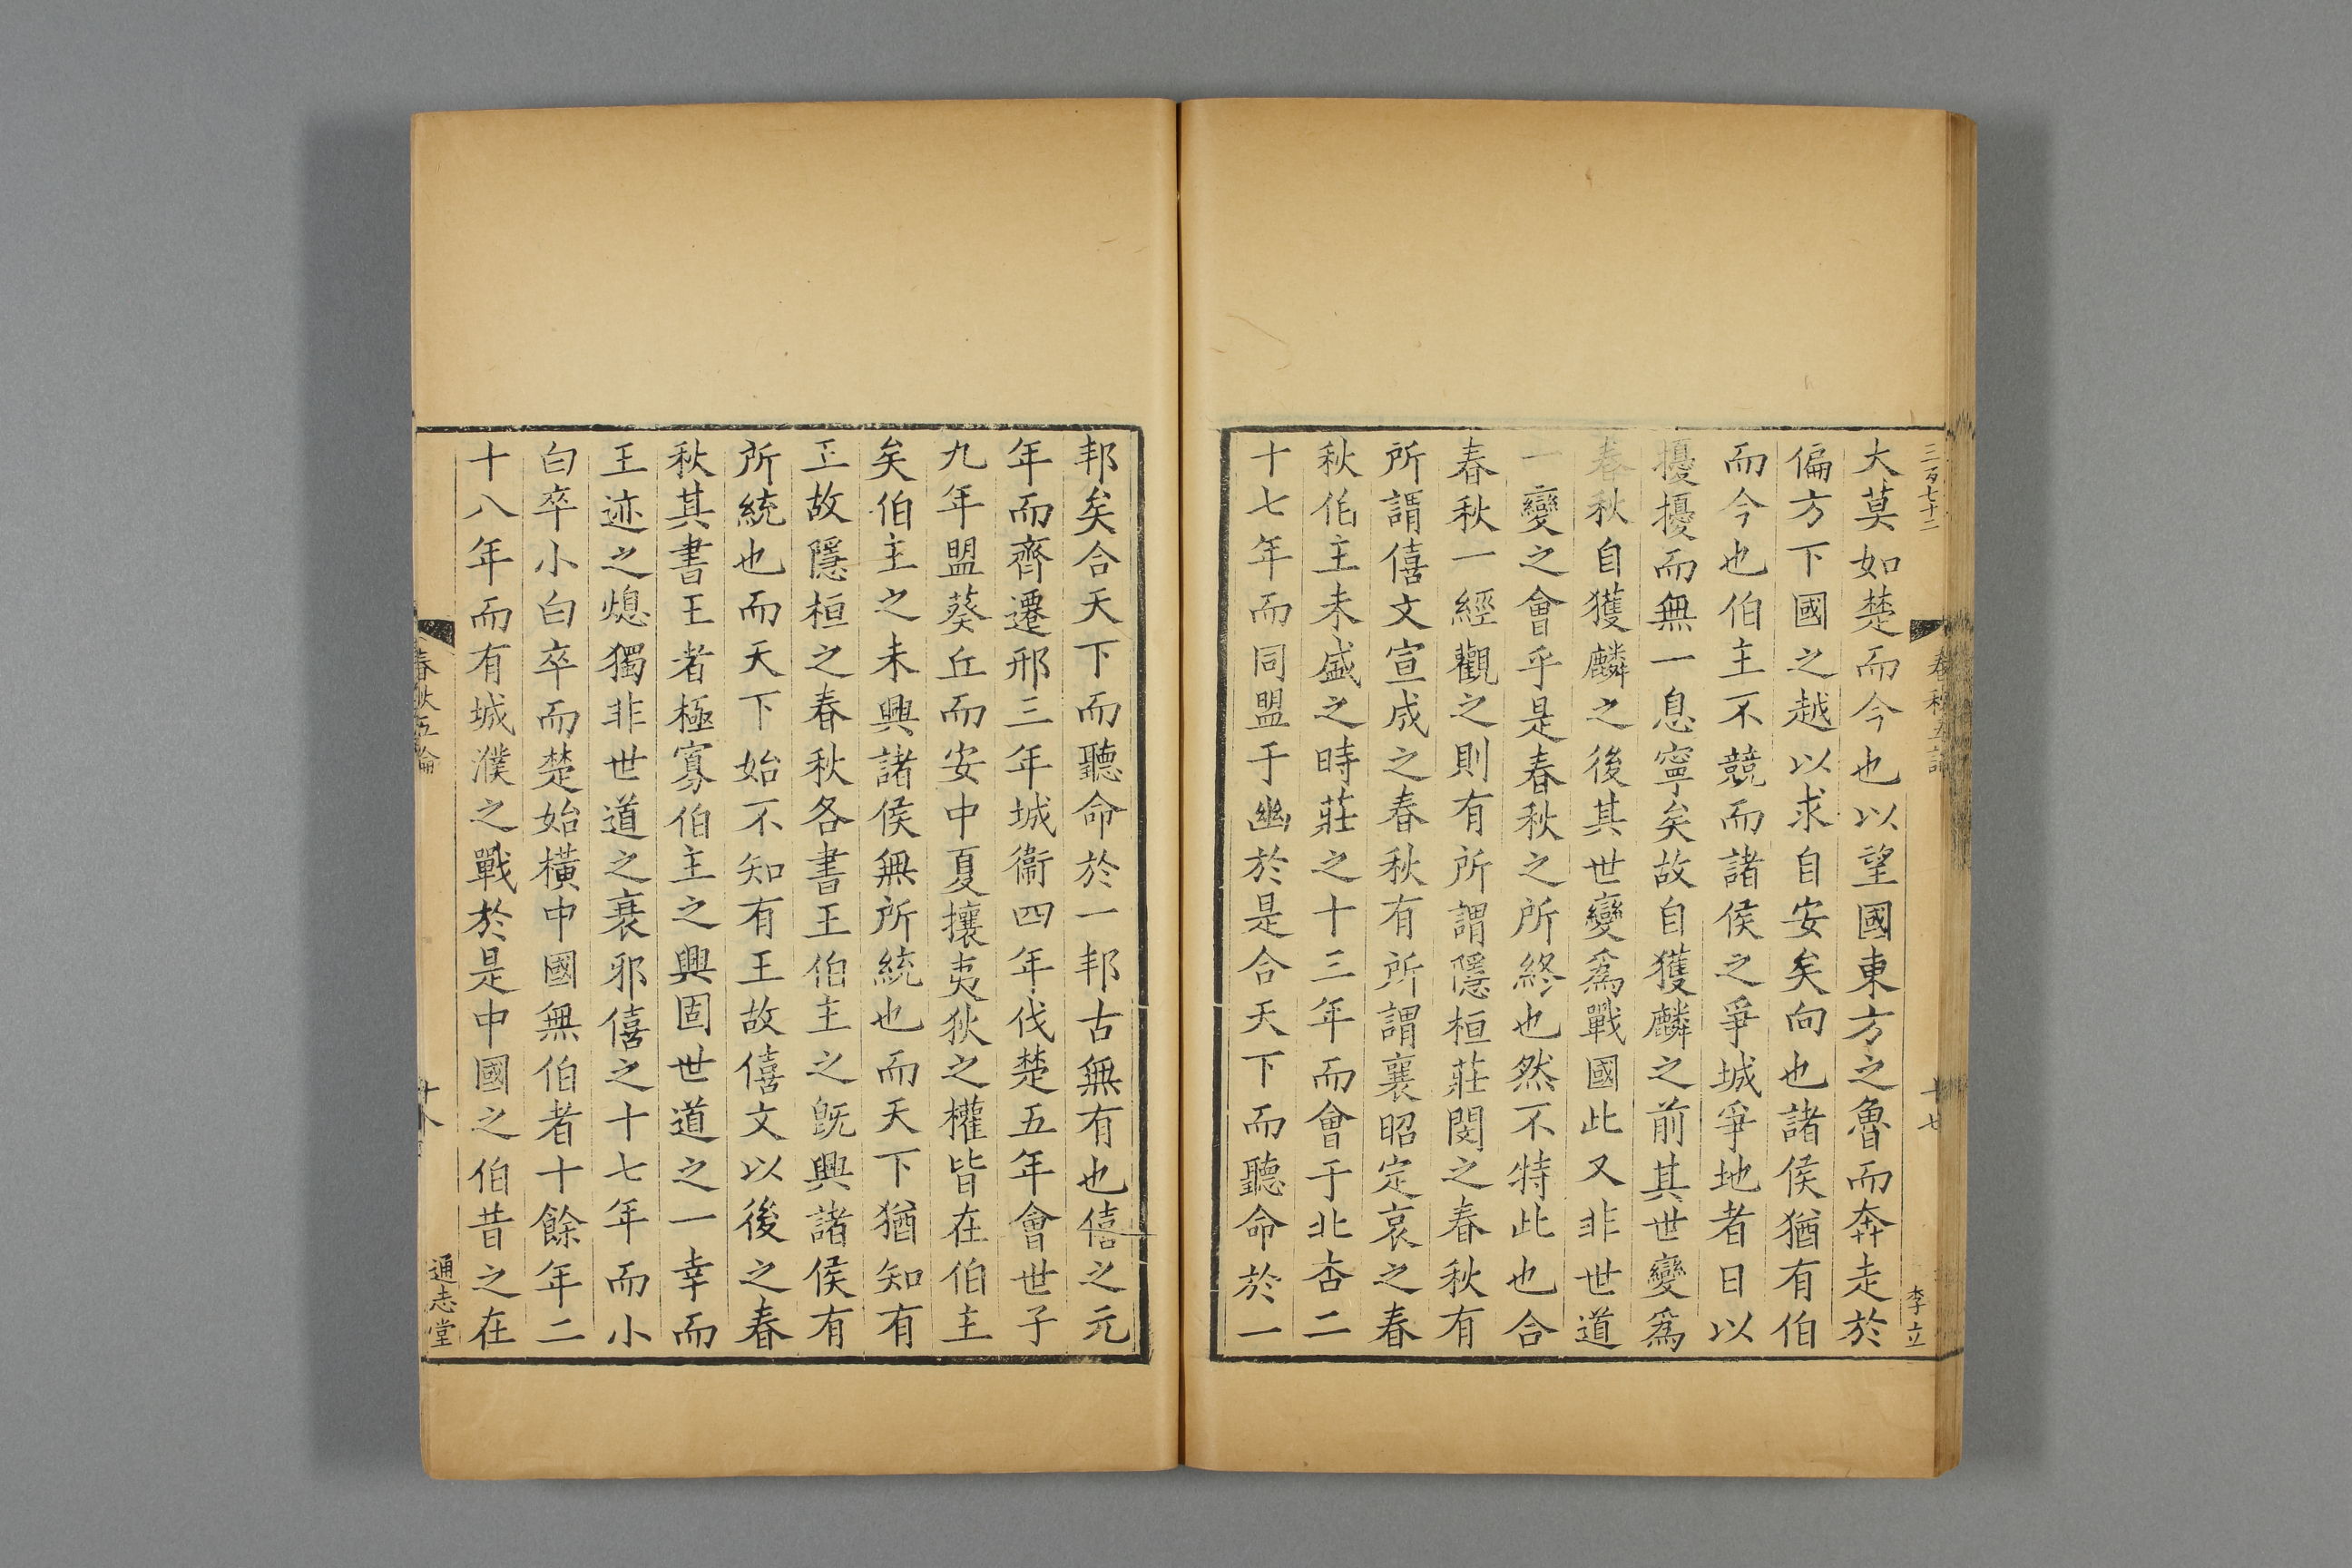 三百七十二
春秋五論
十七
李立
大莫如楚而今也以望國東方之魯而奔走於
偏方下國之越以求自安矣向也諸侯猶有伯
而今也伯主不競而諸侯之爭城爭地者日以
擾擾而無一息寧矣故自獲麟之前其世變爲
春秋自獲麟之後其世變爲戰國此又非世道
一變之會乎是春秋之所終也然不特此也合
春秋一經觀之則有所謂隱桓莊閔之春秋有
所謂僖文宣成之春秋有所謂襄昭定哀之春
秋伯主未盛之時莊之十三年而會于北杏二
十七年而同盟于幽於是合天下而聽命於一
邦矣合天下而聽命於一邦古無有也僖之元
年而齊遷邢三年城衞四年伐楚五年會世子
九年盟葵丘而安中夏攘夷狄之權皆在伯主
矣伯主之未興諸侯無所統也而天下猶知有
王故隱桓之春秋各書王伯主之旣興諸侯有
所統也而天下始不知有王故僖文以後之春
秋其書王者極寡伯主之興固世道之一幸而
王迹之熄獨非世道之衰邪僖之十七年而小
白卒小白卒而楚始橫中國無伯者十餘年二
十八年而有城濮之戰於是中國之伯昔之在
春秋五論
十八
通志堂